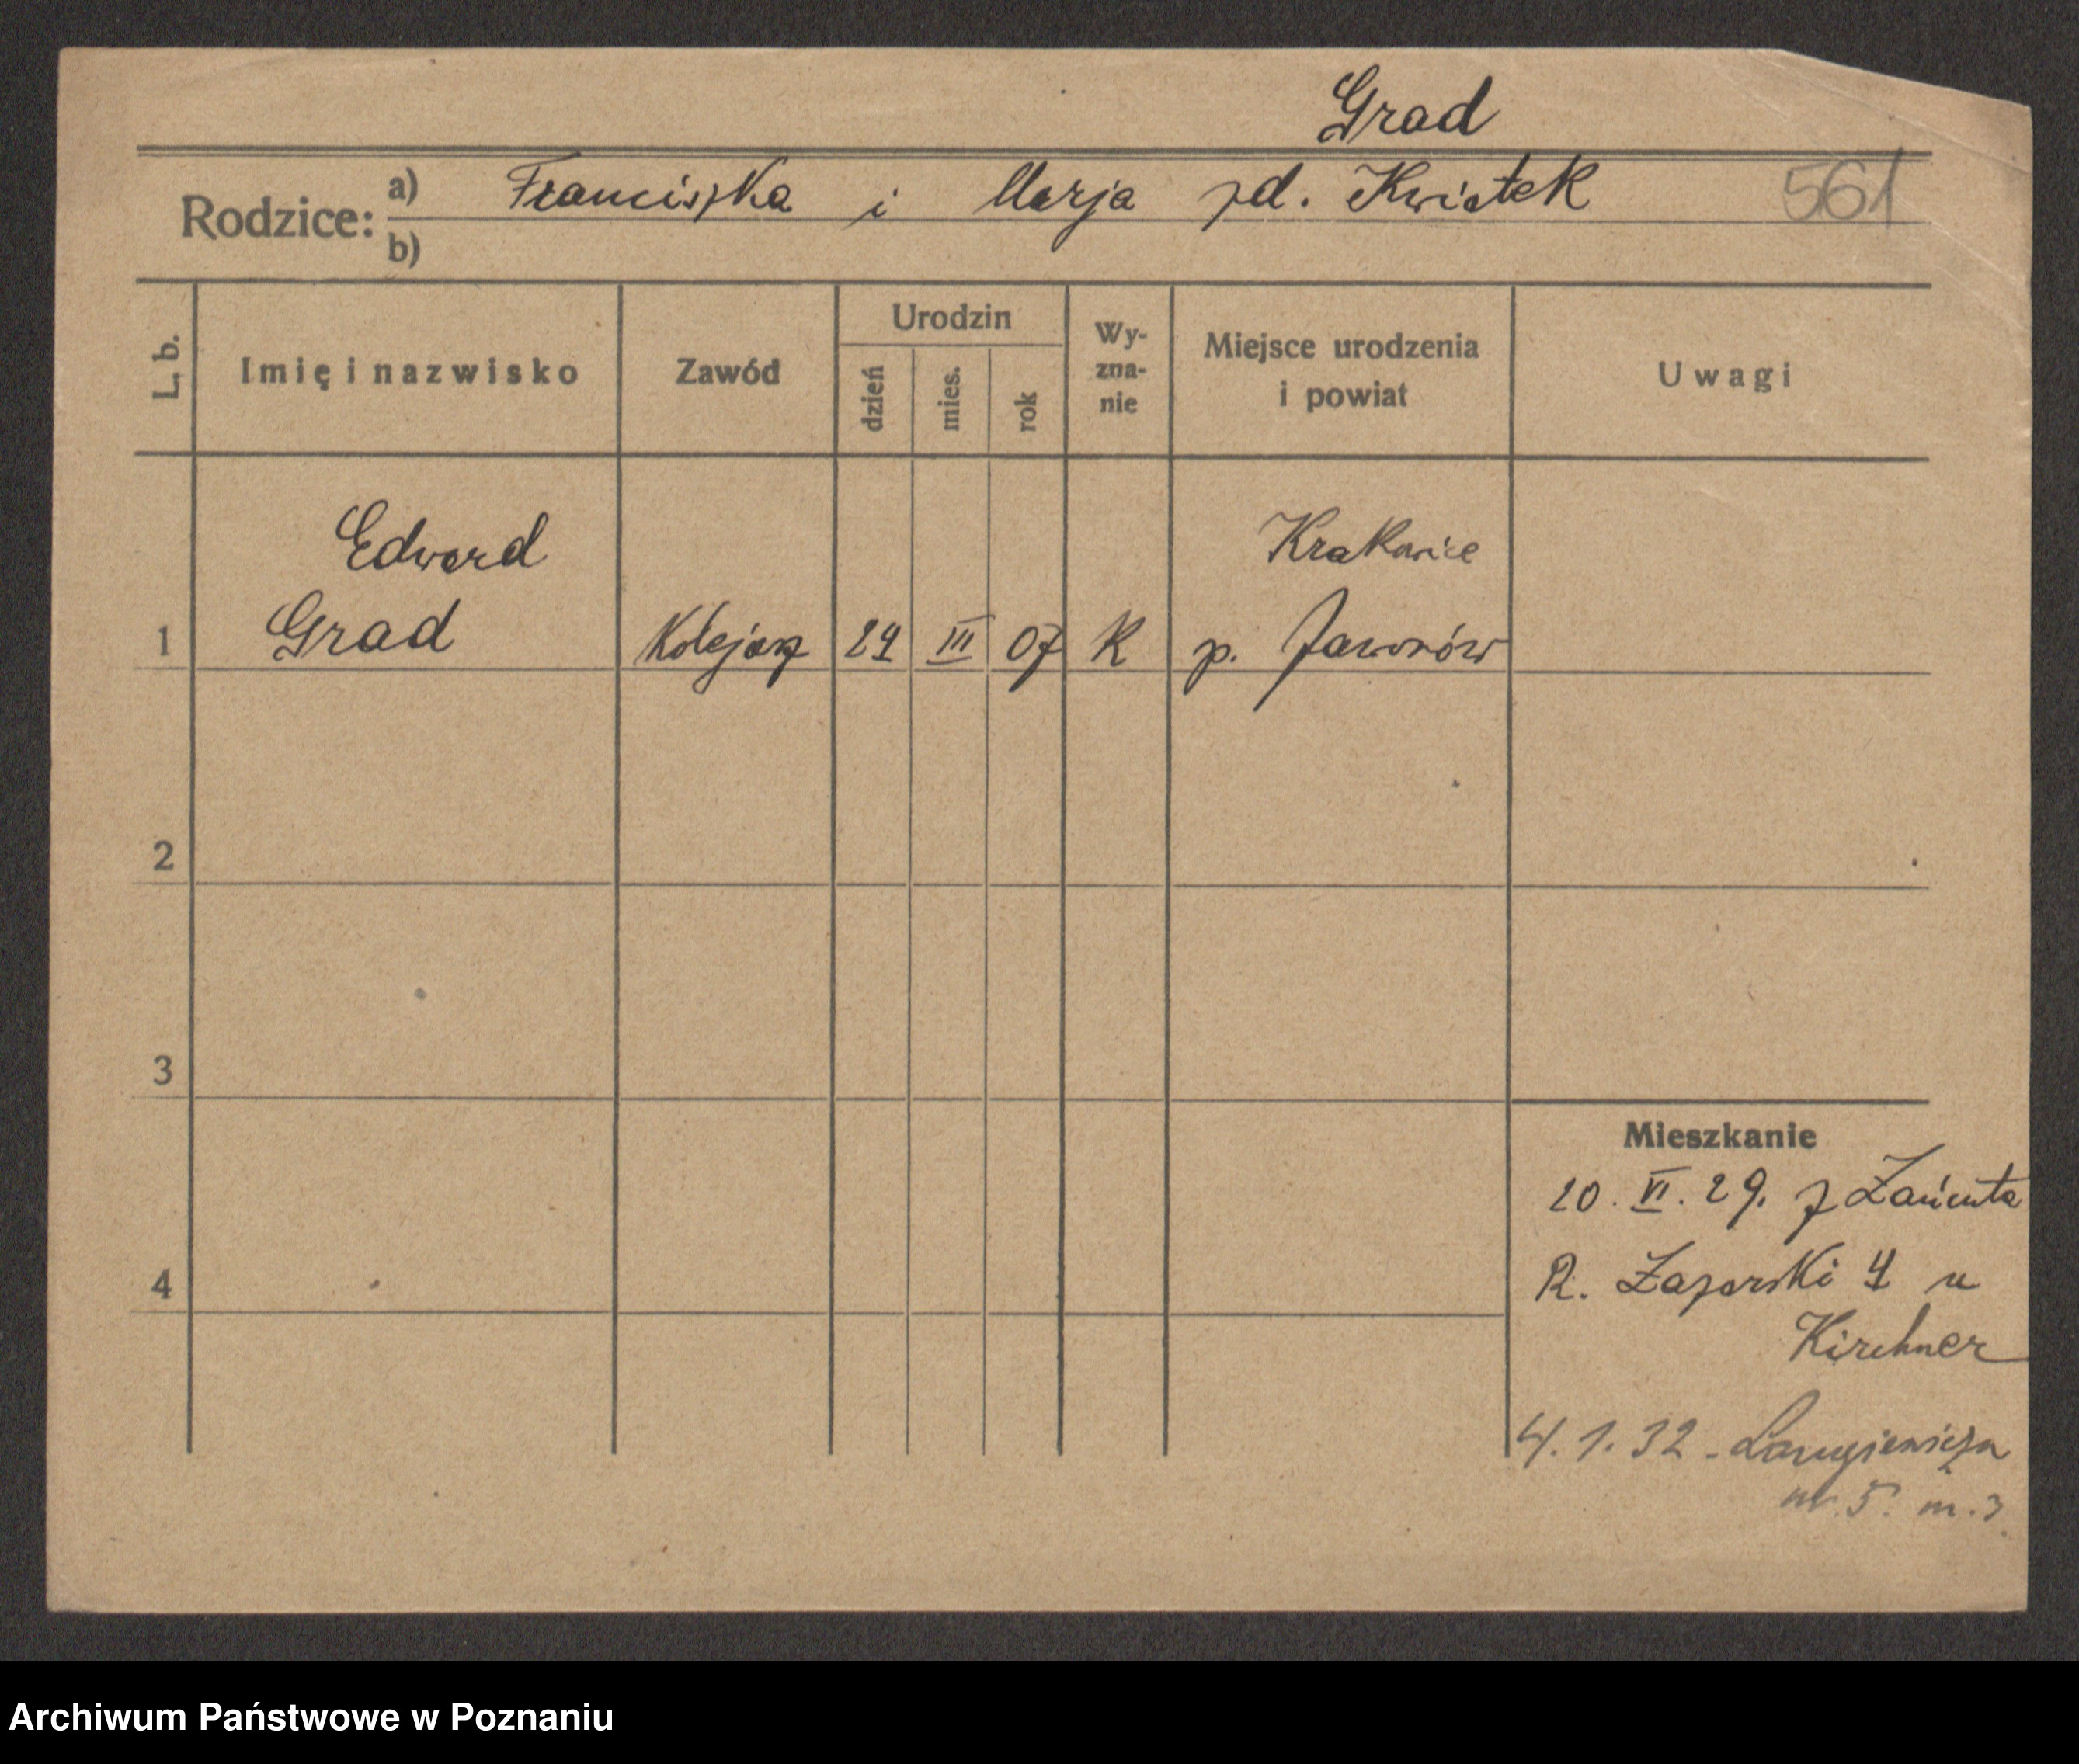 Grad
Rodzice: a) Franciszka i Marja zd. Kwiatek 561
b)
L. b. Imię i nazwisko Zawód Urodzin dzień mies. rok Wy-zna-nie Miejsce urodzenia i powiat Uwagi
Edward Krakowice
1 Grad Kolejarz 24 III 07 K p. Jaworów
2
3
Mieszkanie
20. VI. 29. z Łańcuta
4 R. Łazarski 4 u
Kirchner
4. 1. 32 - Langiewicza
nr 5. m. 3.
Archiwum Państwowe w Poznaniu